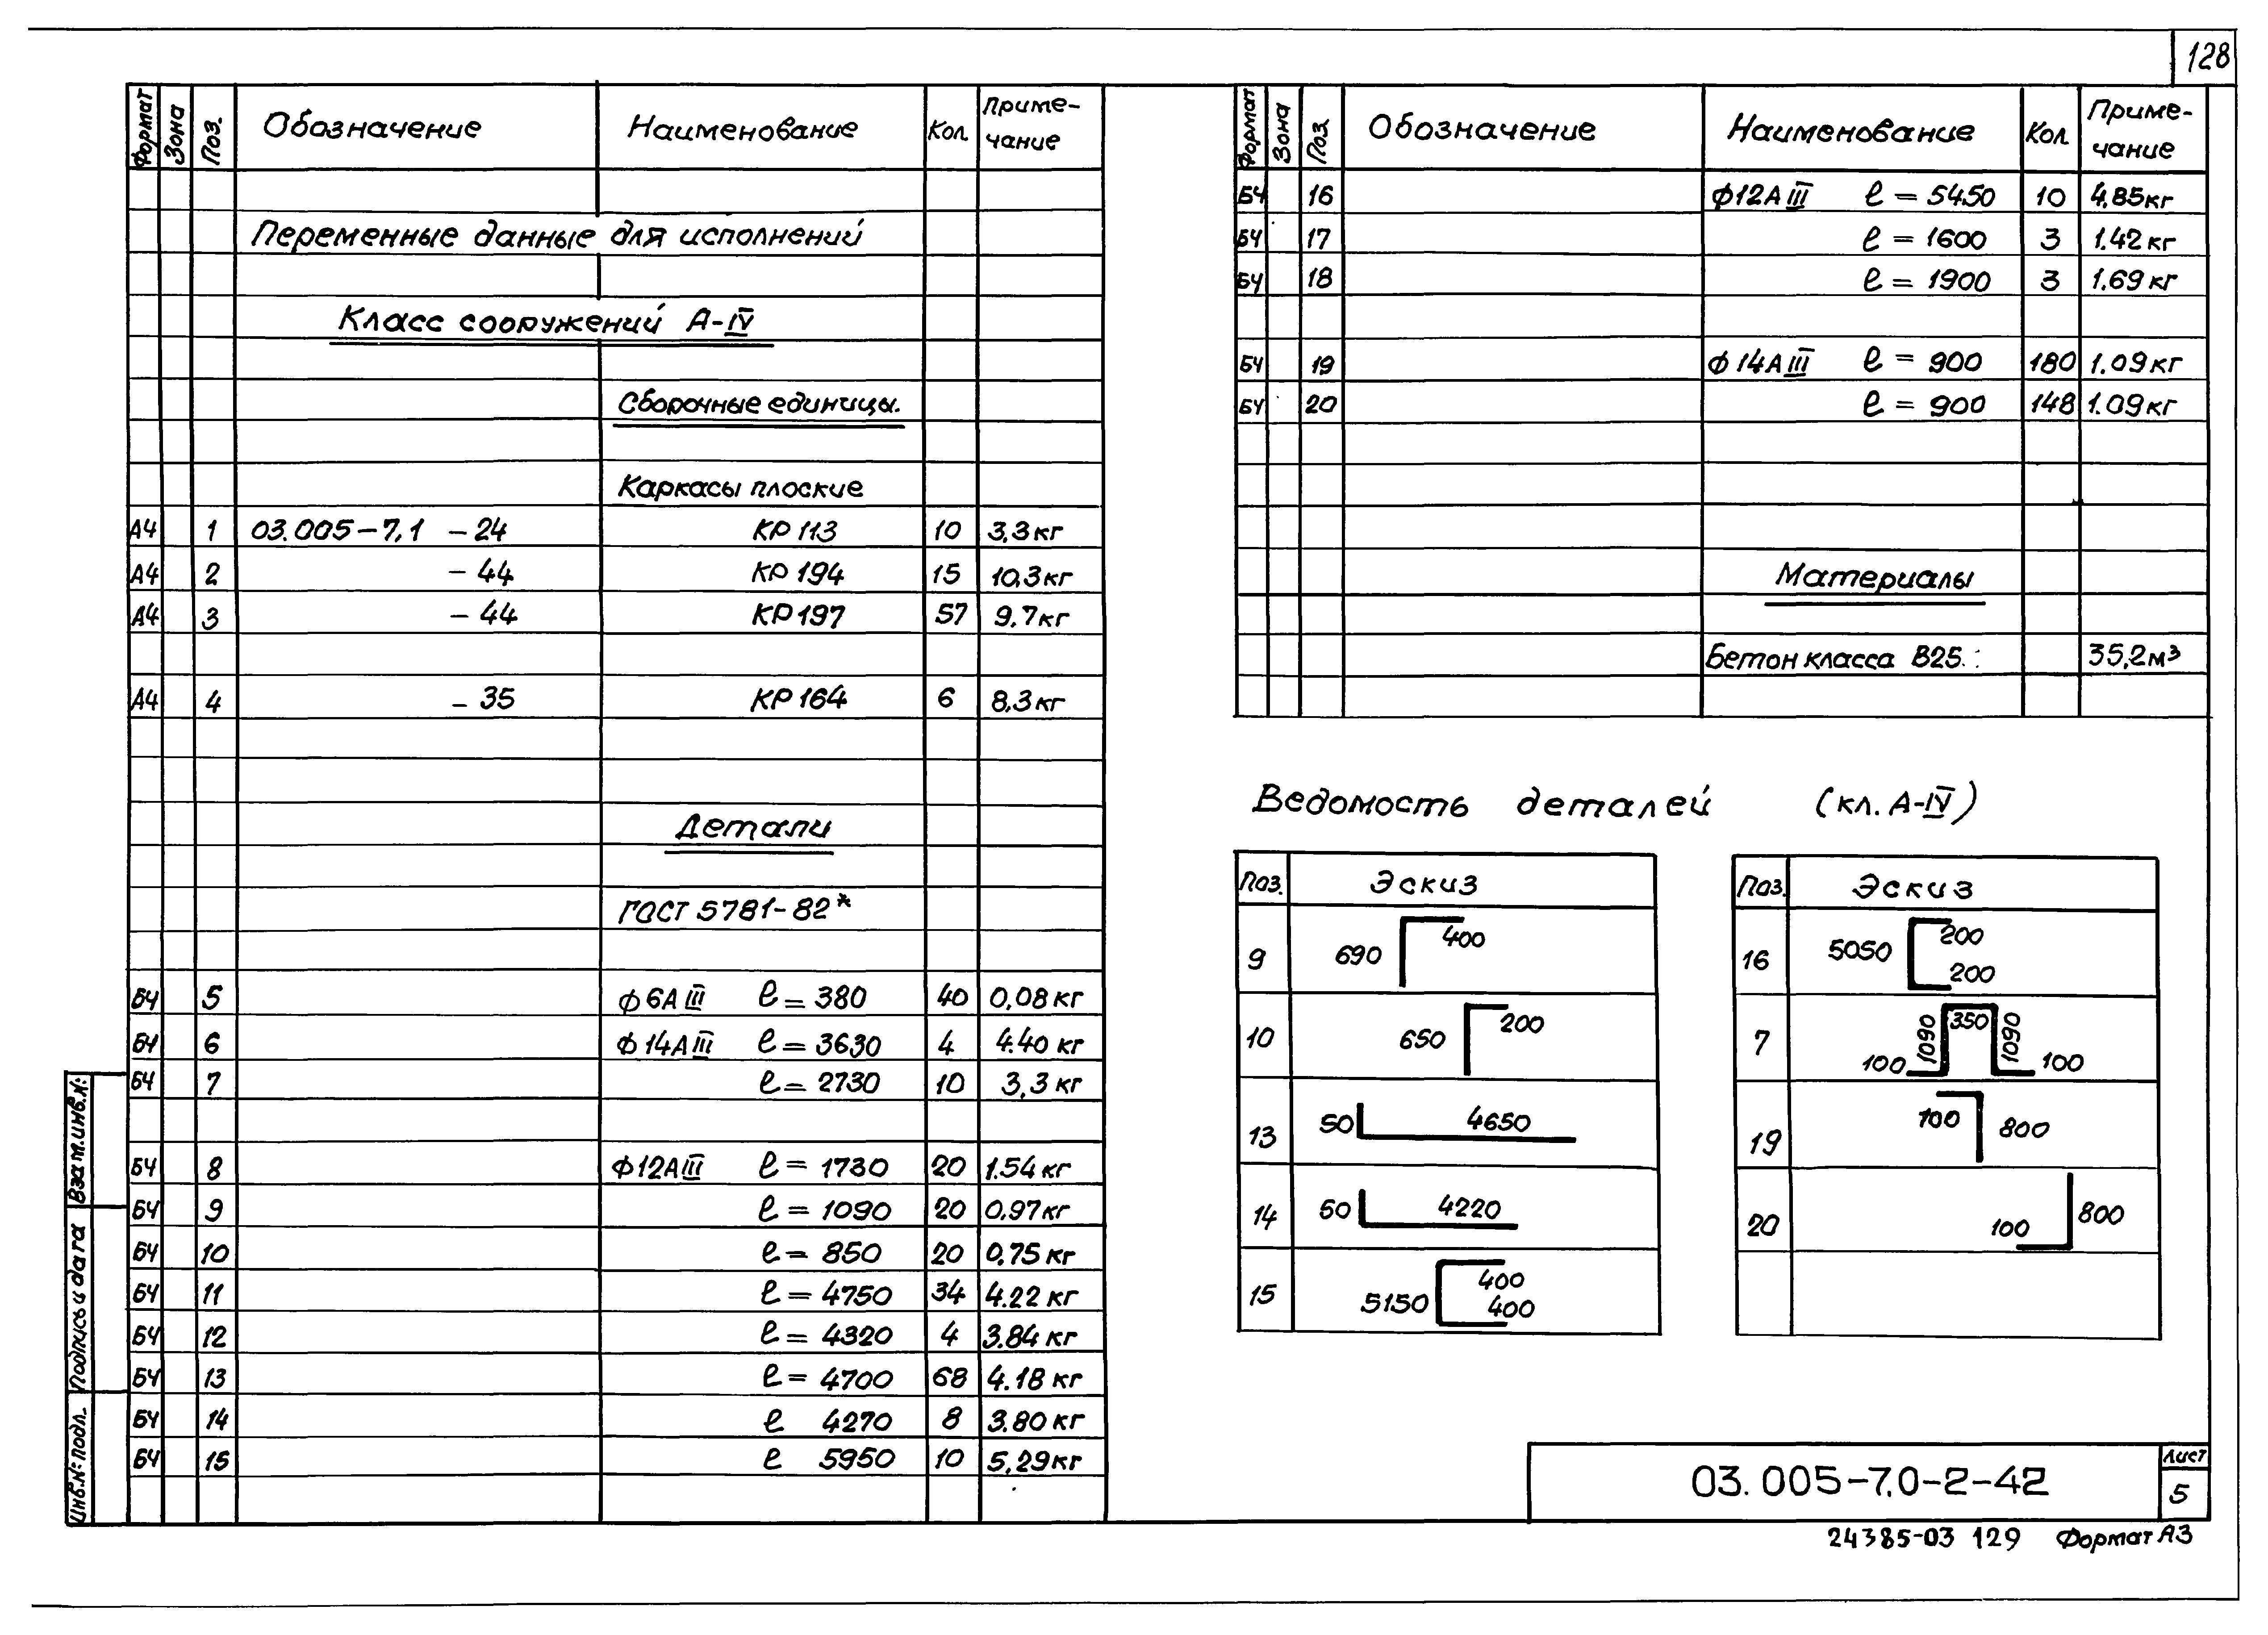 128
Формат Зона Поз. Обозначение Наименование Кол. Приме-чание
Переменные данные для исполнений
Класс сооружений А-IV
Сборочные единицы.
Каркасы плоские
А4 1 03.005-7.1 -24 КР 113 10 3,3кг
А4 2 -44 КР 194 15 10,3кг
А4 3 -44 КР 197 57 9,7кг
А4 4 -35 КР 164 6 8,3кг
Детали
ГОСТ 5781-82*
БЧ 5 ф6АIII ℓ=380 40 0,08кг
БЧ 6 ф14АIII ℓ=3630 4 4.40 кг
БЧ 7 ℓ=2730 10 3,3 кг
БЧ 8 ф12АIII ℓ=1730 20 1.54кг
БЧ 9 ℓ=1090 20 0,97кг
БЧ 10 ℓ=850 20 0,75кг
БЧ 11 ℓ=4750 34 4.22 кг
БЧ 12 ℓ=4320 4 3.84 кг
БЧ 13 ℓ=4700 68 4.18 кг
БЧ 14 ℓ 4270 8 3.80кг
БЧ 15 ℓ 5950 10 5,29кг
Формат Зона Поз. Обозначение Наименование Кол. Приме-чание
БЧ 16 ф12АIII ℓ=5450 10 4,85кг
БЧ 17 ℓ=1600 3 1.42кг
БЧ 18 ℓ=1900 3 1.69кг
БЧ 19 ф14АIII ℓ=900 180 1.09кг
БЧ 20 ℓ=900 148 1.09кг
Материалы
Бетон класса В25. 35,2м³
Ведомость деталей (кл. А-IV)
Поз. Эскиз
9 690 400
10 650 200
13 50 4650
14 50 4220
15 5150 400 400
Поз. Эскиз
16 5050 200 200
7 100 1090 350 1090 100
19 100 800
20 100 800
Взам.инв.№:
Подпись и дата
Инв.№:подл.
03.005-7.0-2-42
Лист
5
24385-03 129 Формат А3